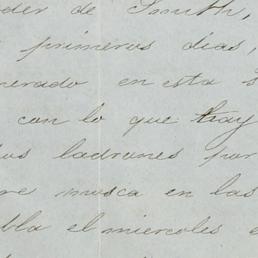 der de Smith,
primeros dias,
nerado en esta
con lo que hay
los ladrones por
re mosca en las
bla el miercoles